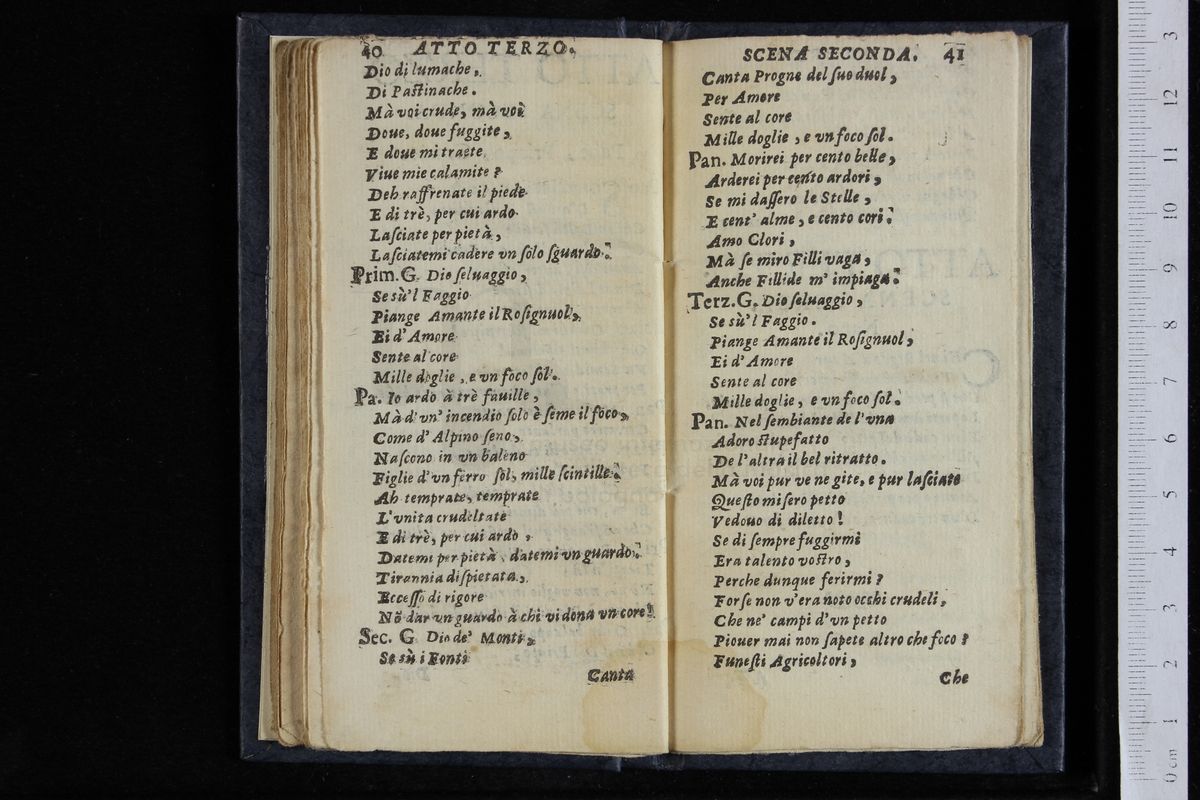 40 ATTO TERZO.
Dio di lumache,
Di Pastinache.
Mà voi crude, mà voi
Doue, doue fuggite,
E doue mi traete
Viue mie calamite?
Deh raffrenate il piede
E di trè, per cui ardo
Lasciate per pietà,
Lasciatemi cadere vn solo sguardo.
Prim.G. Dio seluaggio,
Se sù'l Faggio
Piange Amante il Rosignuol,
Ei d'Amore
Sente al core
Mille doglie, e vn foco sol.
Pa. Io ardo à trè fauille,
Mà d'vn' incendio solo è seme il foco,
Come d' Alpino seno,
Nascono in vn baleno
Figlie d'vn ferro sol, mille scintille.
Ah temprate, temprate
L'vnita crudeltate
E di trè, per cui ardo,
Datemi per pietà, datemi vn guardo.
Tirannia dispietata,
Eccesso di rigore
Nõ dar vn guardo à chi vi dona vn core!
Sec. G Dio de' Monti,
Se sù i Fonti
Canta
SCENA SECONDA. 41
Canta Progne del suo duol,
Per Amore
Sente al core
Mille doglie, e vn foco sol.
Pan. Morirei per cento belle,
Arderei per cento ardori,
Se mi dassero le Stelle,
E cent' alme, e cento cori.
Amo Clori,
Mà se miro Filli vaga,
Anche Fillide m' impiaga.
Terz.G. Dio seluaggio,
Se sù'l Faggio.
Piange Amante il Rosignuol,
Ei d'Amore
Sente al core
Mille doglie, e vn foco sol.
Pan. Nel sembiante de l'vna
Adoro stupefatto
De l'altra il bel ritratto.
Mà voi pur ve ne gite, e pur lasciate
Questo misero petto
Vedouo di diletto!
Se di sempre fuggirmi
Era talento vostro,
Perche dunque ferirmi?
Forse non v'era noto occhi crudeli,
Che ne' campi d'vn petto
Piouer mai non sapete altro che foco?
Funesti Agricoltori,
Che
3
12
11
10
9
8
7
6
5
4
3
2
1
0 cm